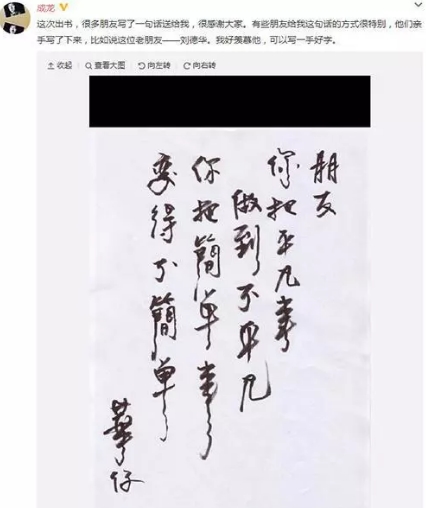 成龙
这次出书，很多朋友写了一句话送给我，很感谢大家。有些朋友给我这句话的方式很特别，他们亲
手写了下来，比如说这位老朋友——刘德华。我好羡慕他，可以写一手好字。
收起 查看大图 向左转 向右转
朋友
你把平凡事
做到不平凡
你把簡单事
变得不簡单
華仔